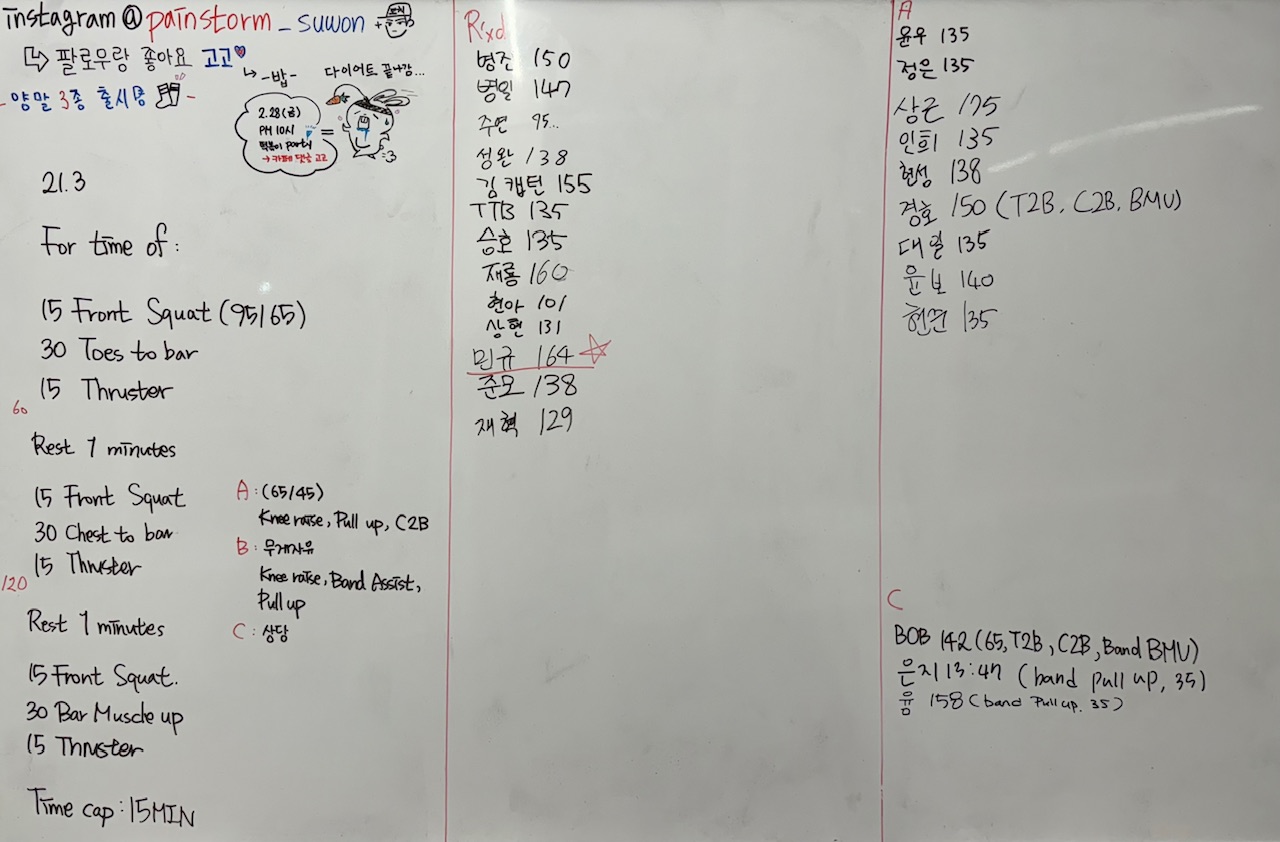 instagram@painstorm_suwon
팔로우랑 좋아요 고고
-양말 3종 출시중-
-밥-
다이어트 끝나감...
2.28(금)
PM 10시
떡볶이 party
→카페 댓글 고고
=
21.3
For time of:
15 Front Squat (95/65)
30 Toes to bar
15 Thruster
60
Rest 1 minutes
15 Front Squat
30 Chest to bar
15 Thruster
120
Rest 1 minutes
15 Front Squat.
30 Bar Muscle up
15 Thruster
Time cap:15MIN
A:(65/45)
Knee raise, Pull up, C2B
B:무게자유
Knee raise, Band Assist,
Pull up
C:상담
Rxd
병조 150
병일 147
주연 95...
성완 138
김캡턴 155
TTB 135
승호 135
재룡 160
현아 101
상현 131
민규 164
준모 138
재혁 129
A
윤우 135
정은 135
상근 175
인희 135
현성 138
경호 150 (T2B, C2B, BMU)
대일 135
윤보 140
135
C
BOB 142(65,T2B,C2B,Band BMU)
은지 13:47 (band pull up, 35)
윰 158(band Pull up, 35)